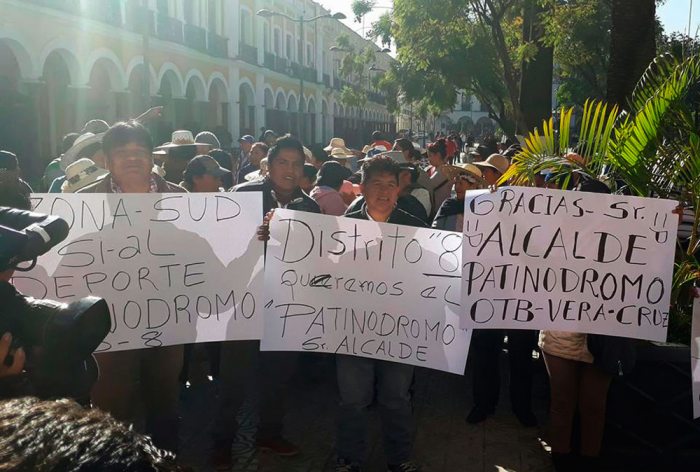 ZONA-SUD
SI-aL
DEPORTE
NODROMO"
S-8
Distrito "8
queramos el
"PATINODROMO"
Sr. ALCALDE
GRACIAS-Sr.
"ALCALDE"
PATINODROMO
OTB-VERA-CRUZ